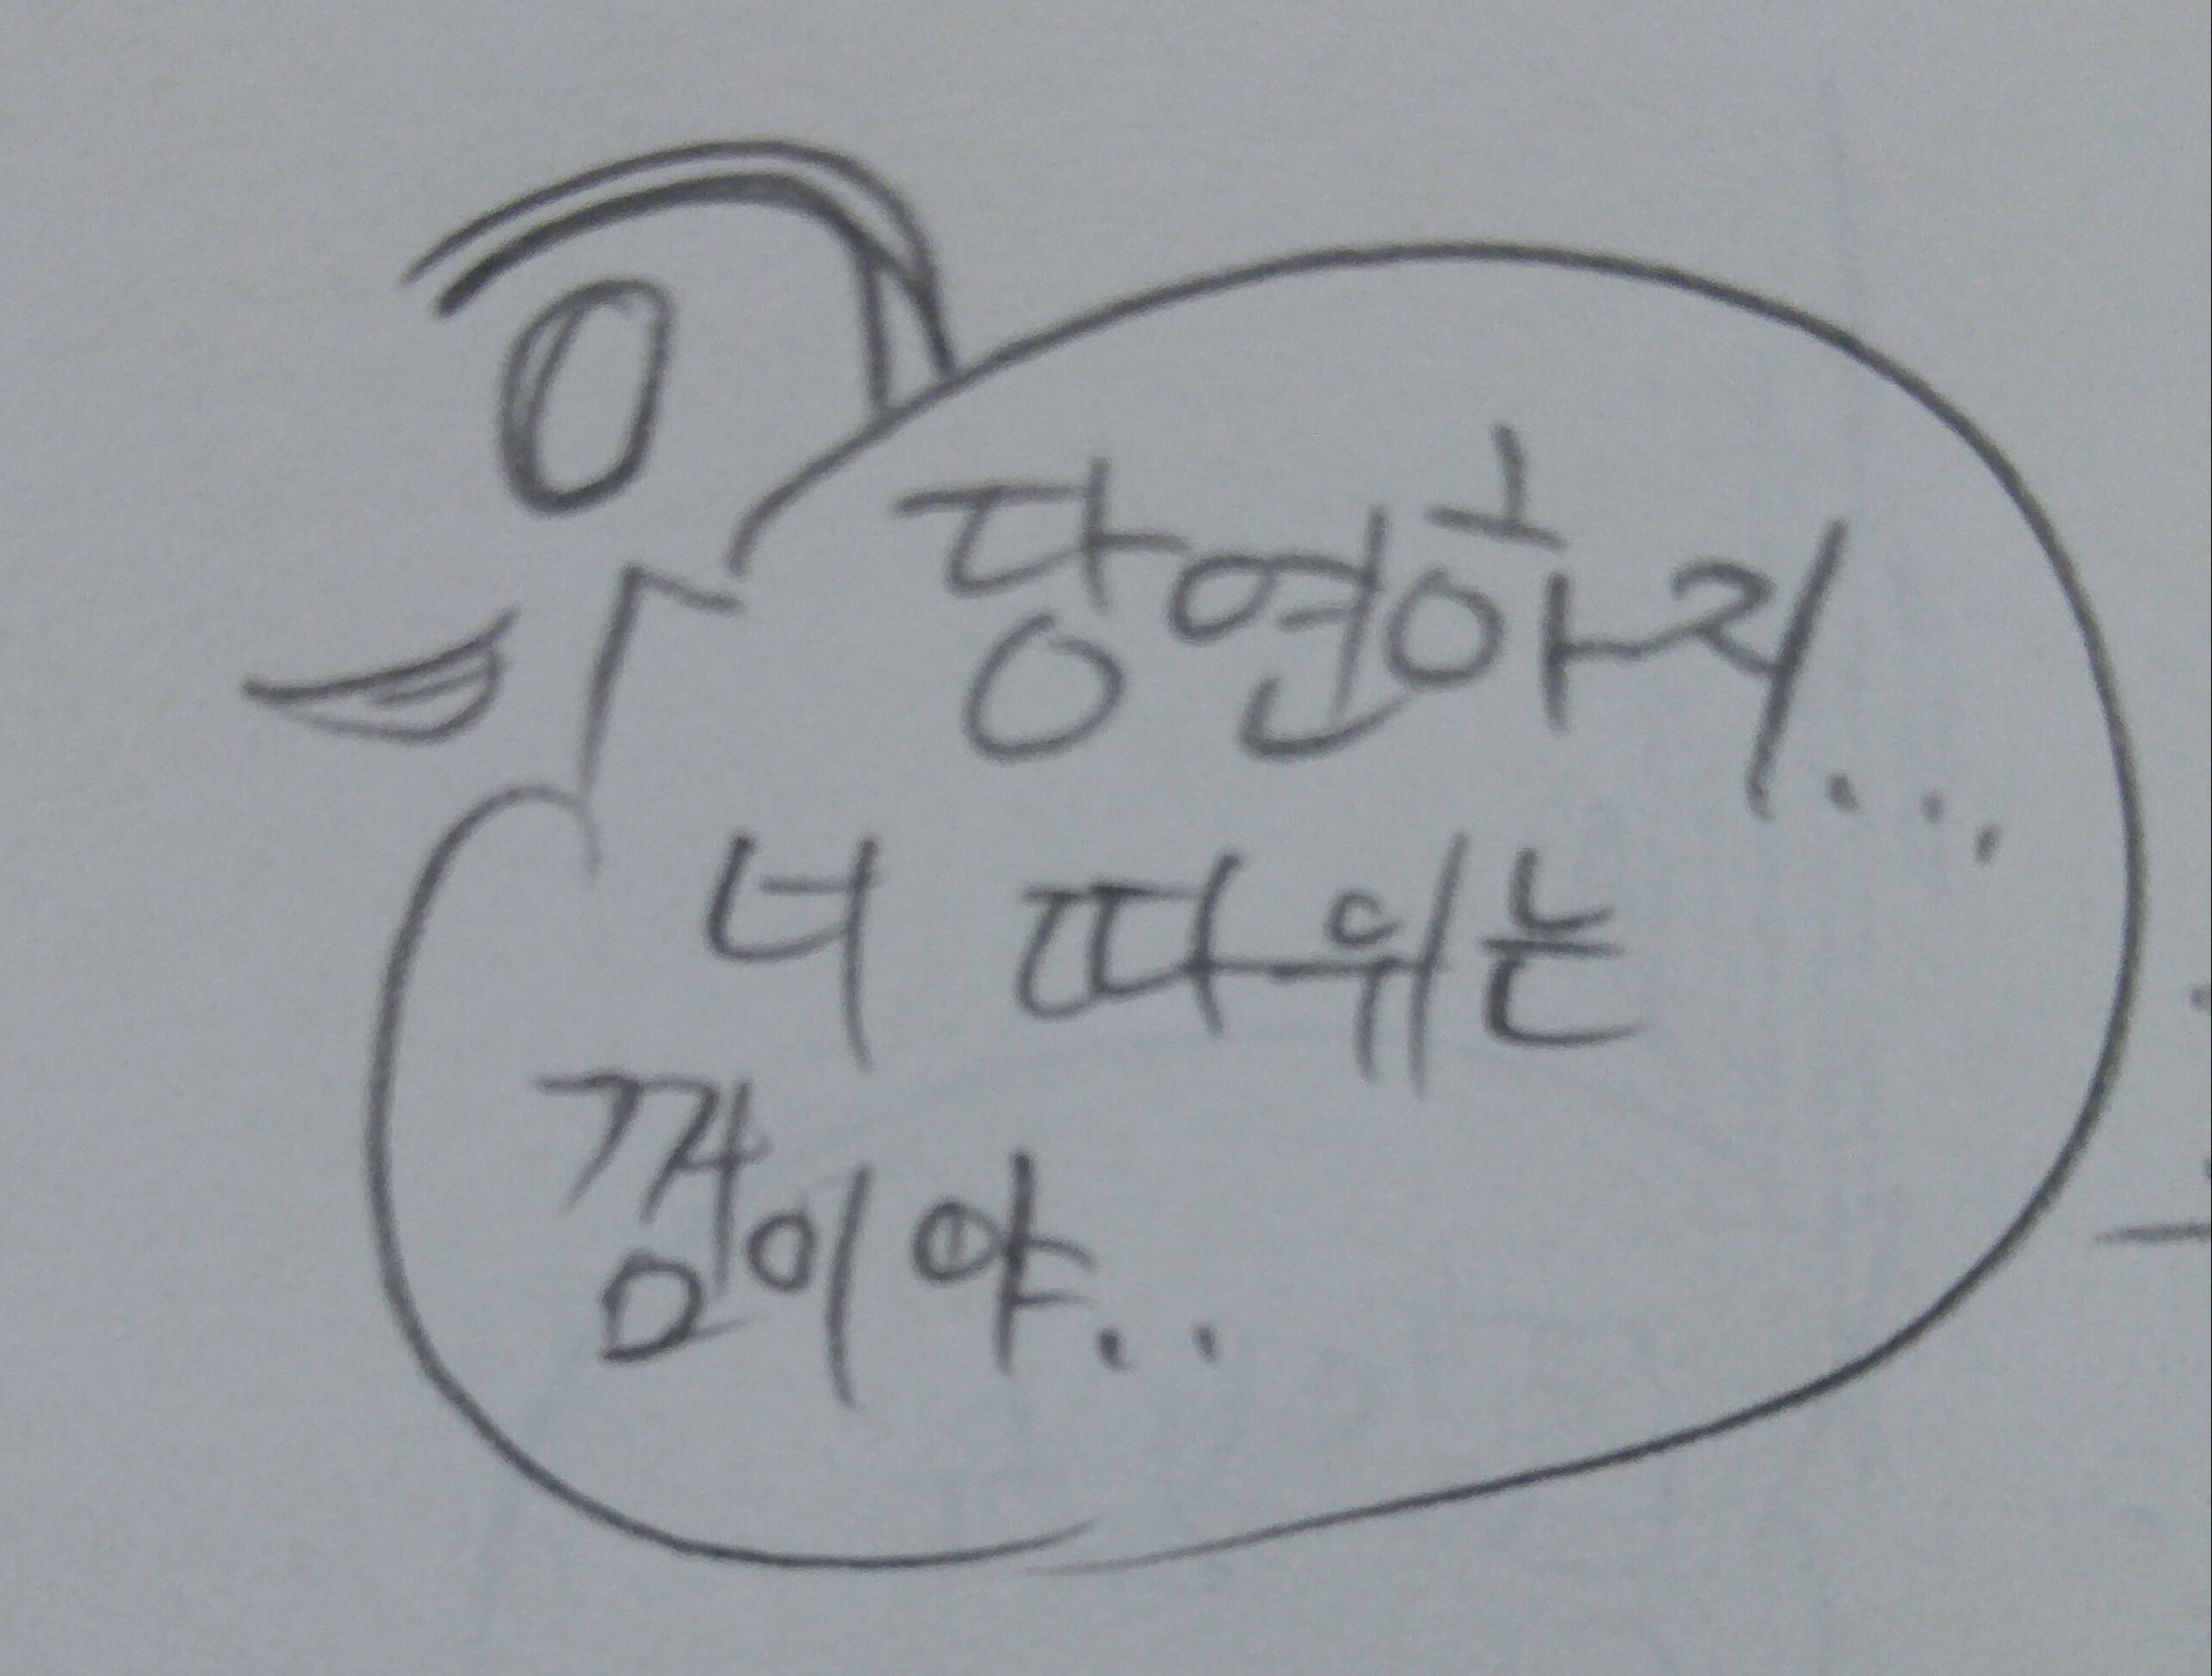 당연하지...
너 따위는
껌이야..